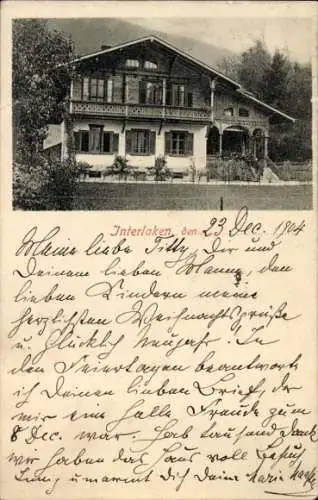 Interlaken, den 23 Dec. 1904
Meine liebe Titty, Dir und
Deinem lieben Manne, den
lieben Kindern meine
herzlichsten Weihnachtsgrüße
u. Glücklich Neujahr. In
den Feiertagen beantworte
ich Deinen lieben Brief, der
mir eine helle Freude zum
8 Dec. war. Hab tausend Dank
wir haben das Haus voll
umarmt Dich Deine Marie